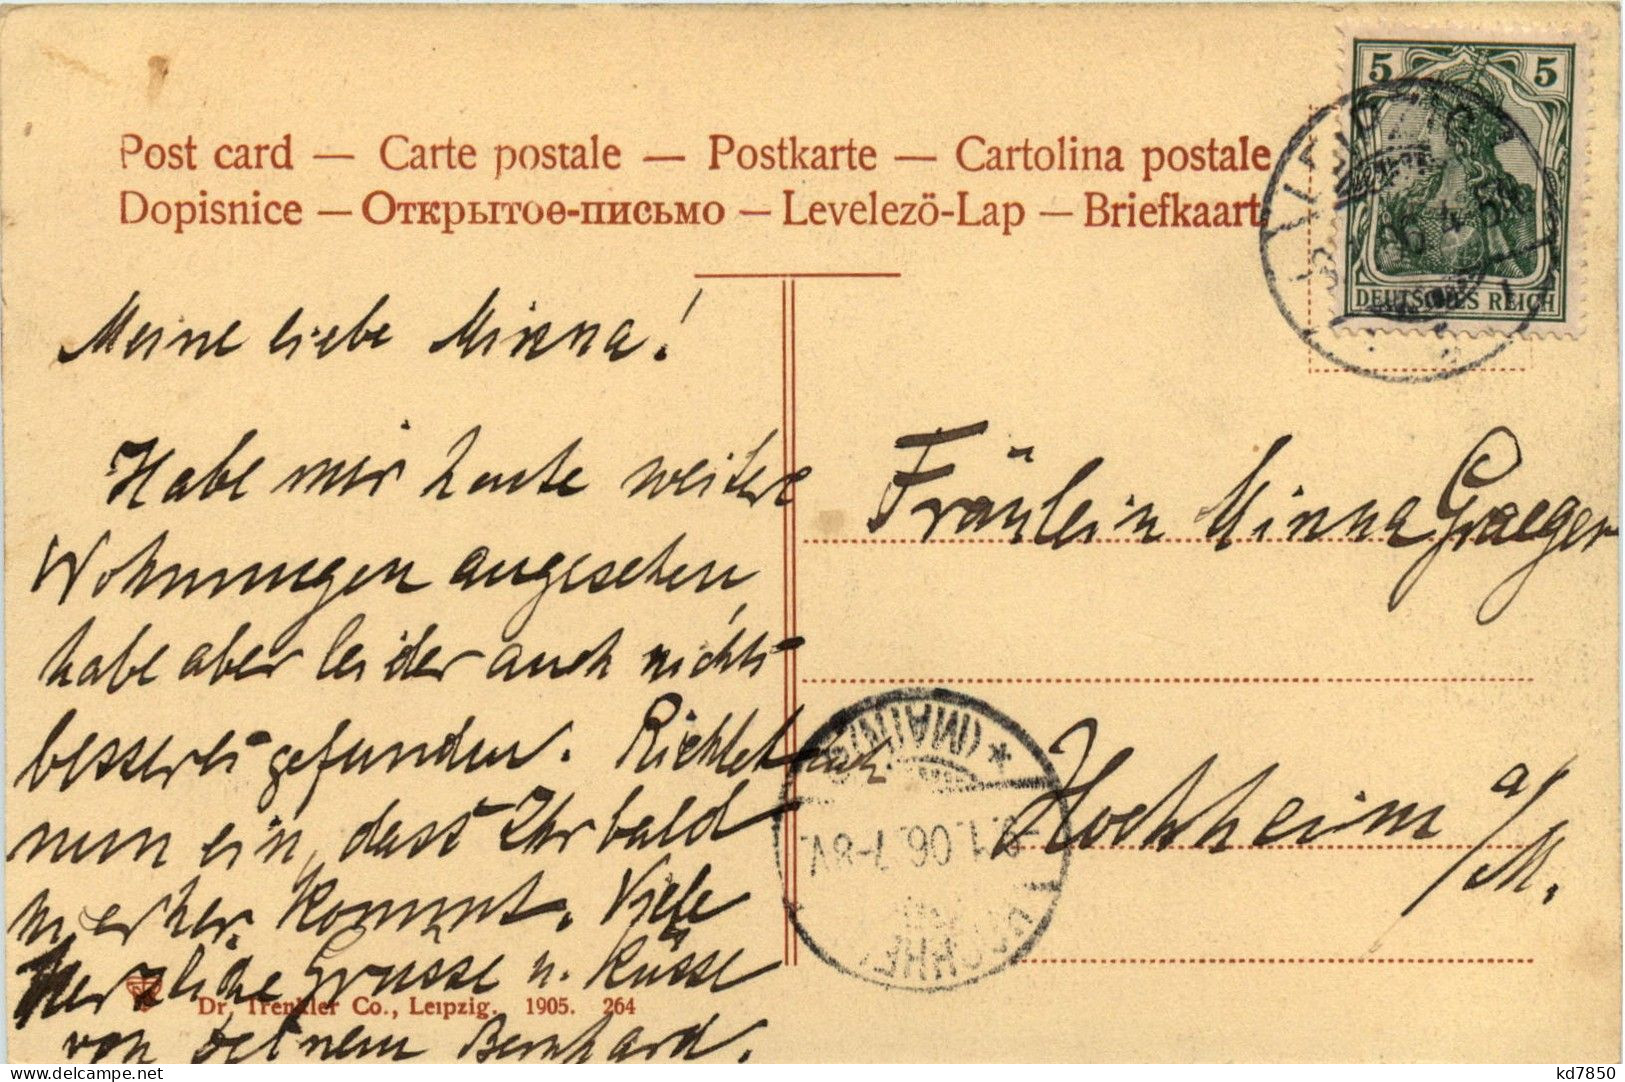 Post card — Carte postale — Postkarte — Cartolina postale
Dopisnice — Открытое-письмо — Levelezö-Lap — Briefkaart
5 5
DEUTSCHES REICH
LEIPZIG
Meine liebe Minna!
Habe mir heute weitere
Wohnungen angesehen,
habe aber leider auch nichts
besseres gefunden. Richtet Euch
nun ein, dass Ihr bald
hierher kommt. Viele
Herzliche Grüsse u. Küsse
von Deinem Bernhard.
Fräulein Minna Graeger
Hochheim a/M.
HOCHHEIM
(MAIN)
1.06.7-8V.
Dr. Trenkler Co., Leipzig. 1905. 264
delcampe.net
kd7850